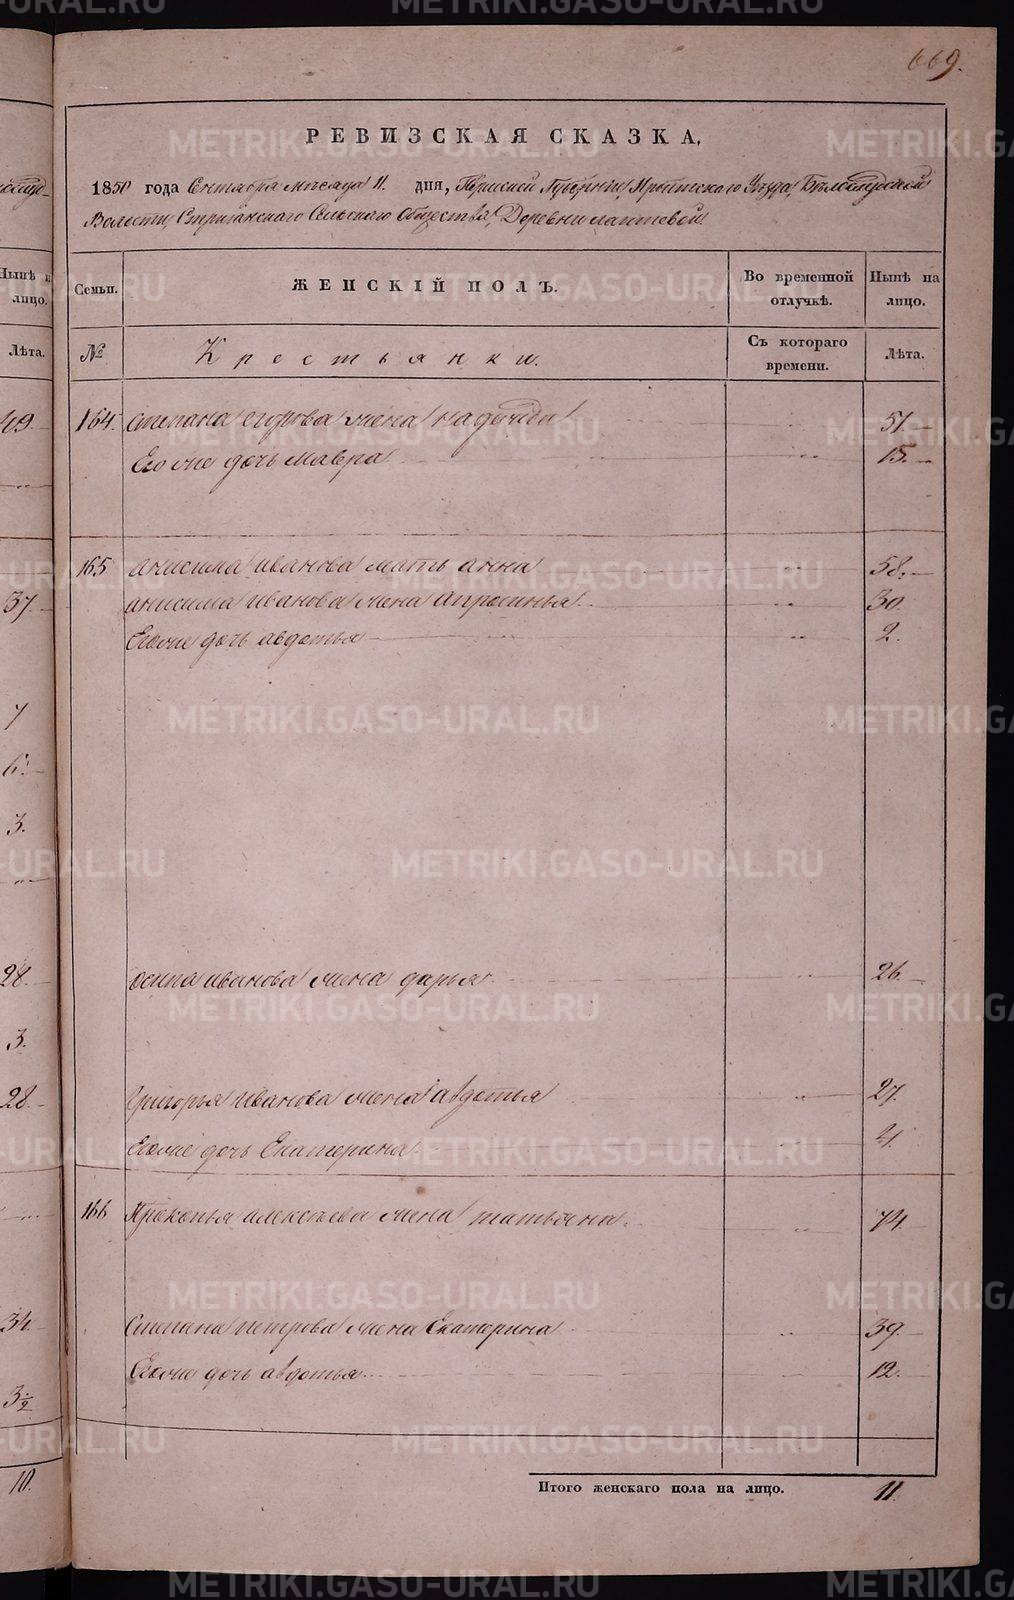 669.
РЕВИЗСКАЯ СКАЗКА,
1850 года Сентября месяца 11. дня, Пермской Губерніи, Ирбитского Уезда, Белослудской
Волости, Стриганского Сельского Общества, Деревни Лаптевой
Нынѣ на лицо.
Лѣта.
Семьи.
ЖЕНСКІЙ ПОЛЪ.
Во временной отлучкѣ.
Нынѣ на лицо.
№
Крестьянки.
Съ котораго времени.
Лѣта.
49.
164. Степана Егорова жена Надежда 51.
Его же дочь Мавра 15.
165 Анисима Иванова мать Анна 58.
37. Анисима Иванова жена Апросинья 30.
Его же дочь Авдотья 2.
7
6.
3.
28. Осипа Иванова жена Дарья 26.
3.
28. Григорья Иванова жена Авдотья 27.
Его же дочь Екатерина. 4.
166 Прокопья Алексеева жена Татьяна. 74.
34. Степана Петрова жена Екатерина 39.
Его же дочь Авдотья 12.
10. Итого женскаго пола на лицо. 11.
METRIKI.GASO-URAL.RU